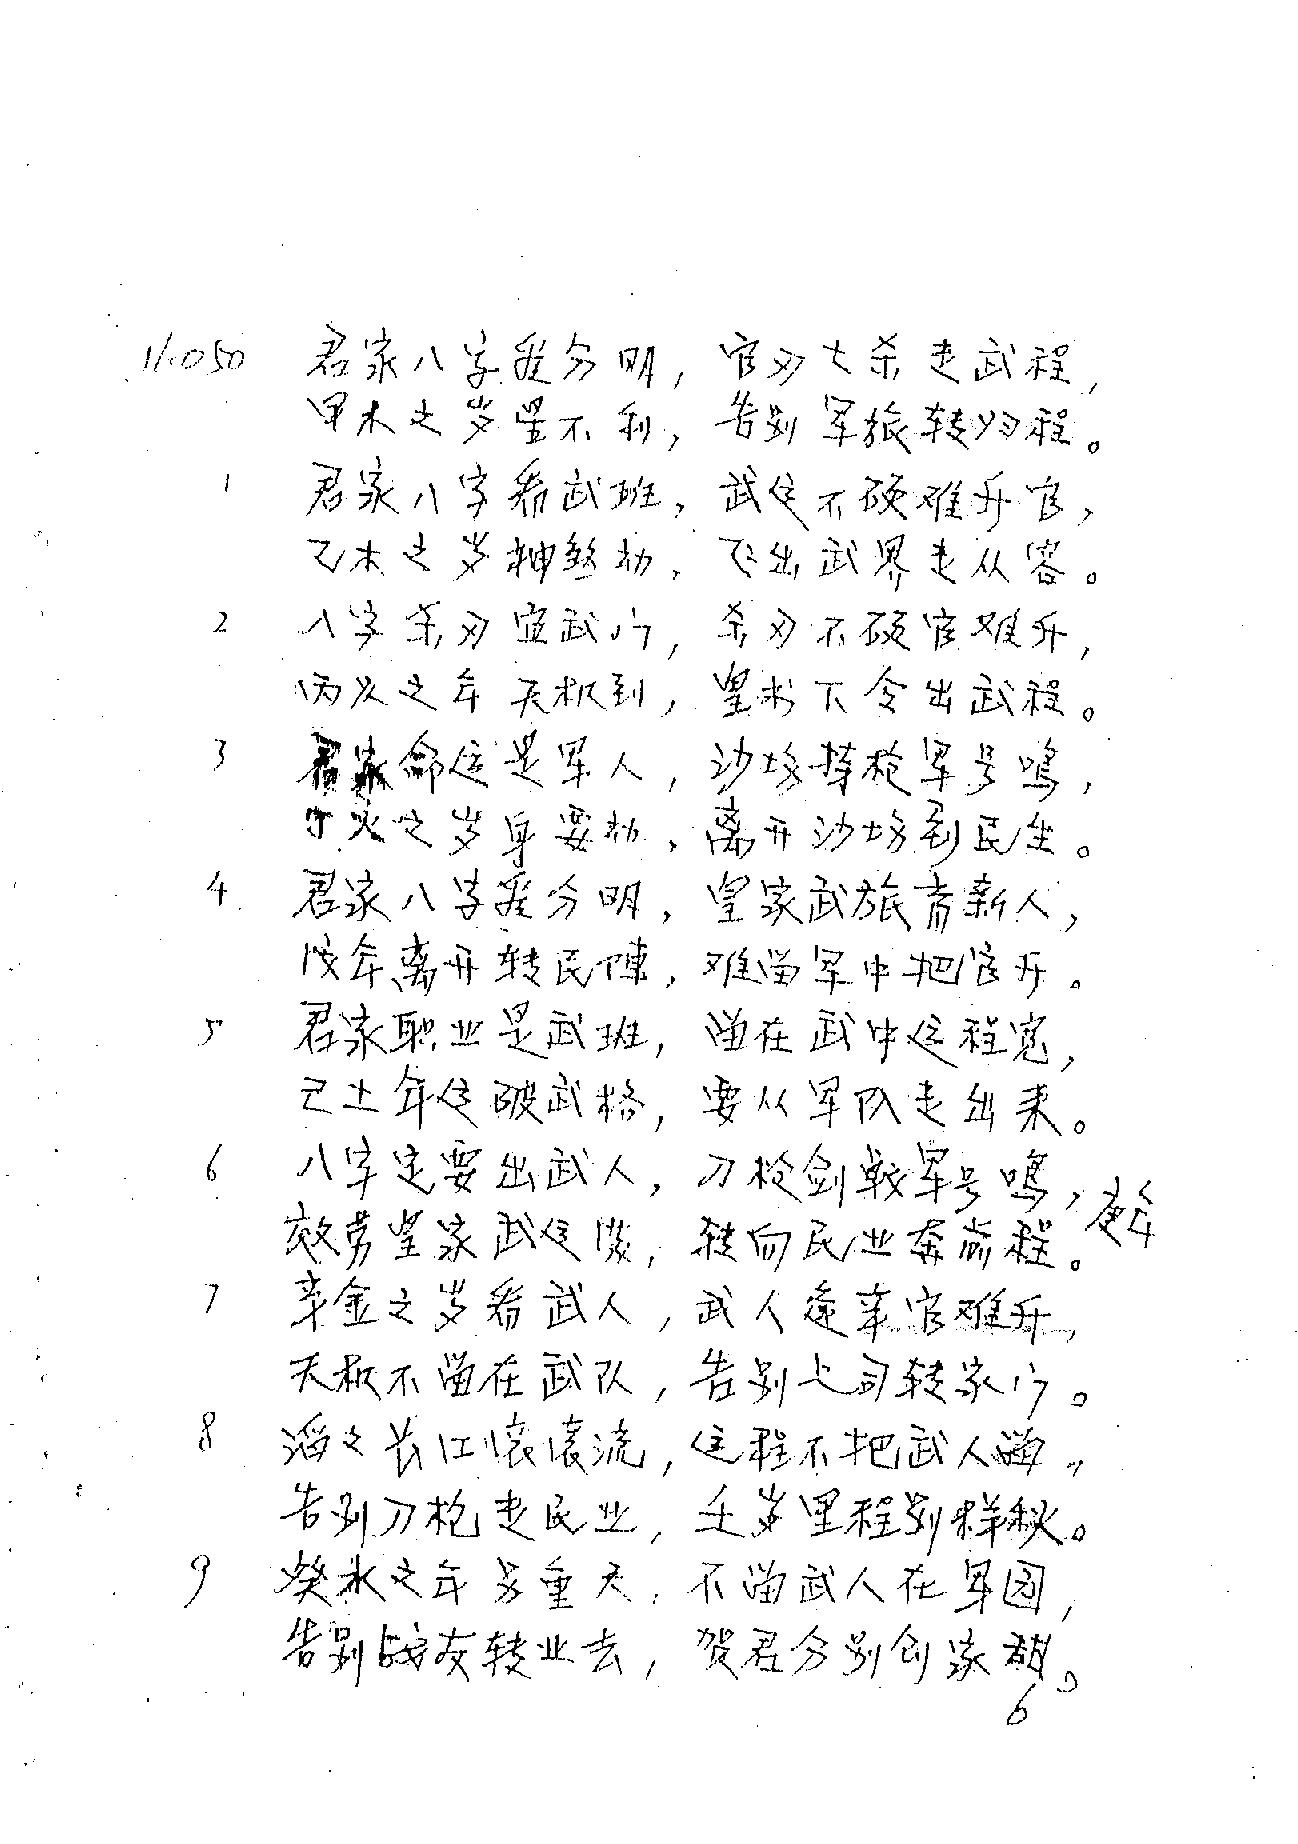 11.050 君家八字注分明，官刃七杀走武程，
甲木之岁星不利，告别军旅转归程。
1 君家八字看武班，武运不硬难升官，
乙木之岁神煞动，飞出武界走从容。
2 八字杀刃宜武门，杀刃不硬官难升，
丙火之年天机到，星术下令出武程。
3 君家命运是军人，沙场持枪军号鸣，
丁火之岁身要动，离开沙场到民生。
4 君家八字注分明，皇家武旅育新人，
戊年离开转民陣，难留军中把官升。
5 君家职业是武班，留在武中运程宽，
己土年运破武格，要从军队走出来。
6 八字定要出武人，刀枪剑戟军号鸣，庚年
效劳皇家武运满，转向民业奔前程。
7 辛金之岁看武人，武人逢辛官难升，
天机不留在武队，告别上司转家门。
8 滔之长江滚滚流，运程不把武人留，
告别刀枪走民业，壬岁里程别样秋。
9 癸水之年另重天，不留武人在军园，
告别战友转业去，贺君分别创家甜。
6